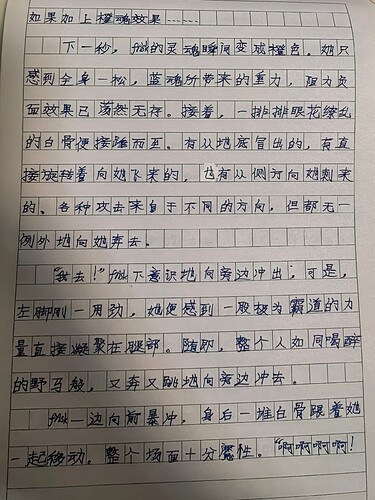 如果加上橙魂效果……
下一秒，frisk的灵魂瞬间变成橙色。她只
感到全身一松，蓝魂所带来的重力，阻力负
面效果已荡然无存。接着，一排排眼花缭乱
的白骨便接踵而至。有从地底冒出的，有直
接旋转着向她飞来的，也有从侧方向她刺来
的。各种攻击来自于不同的方向，但都无一
例外地向她奔去。
“我去！”frisk下意识地向旁边冲出；可是，
左脚刚一用劲，她便感到一股极为霸道的力
量直接凝聚在腿部。随即，整个人如同喝醉
的野马般，又奔又跳地向旁边冲去。
frisk一边向前暴冲，身后一堆白骨跟着她
一起移动。整个场面十分魔性。“啊啊啊啊！